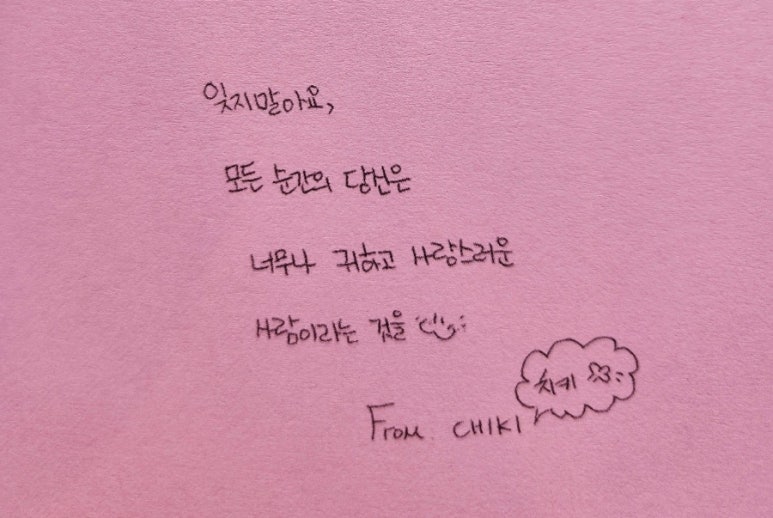 잊지말아요,
모든 순간의 당신은
너무나 귀하고 사랑스러운
사람이라는 것을
치키
From. CHIKI